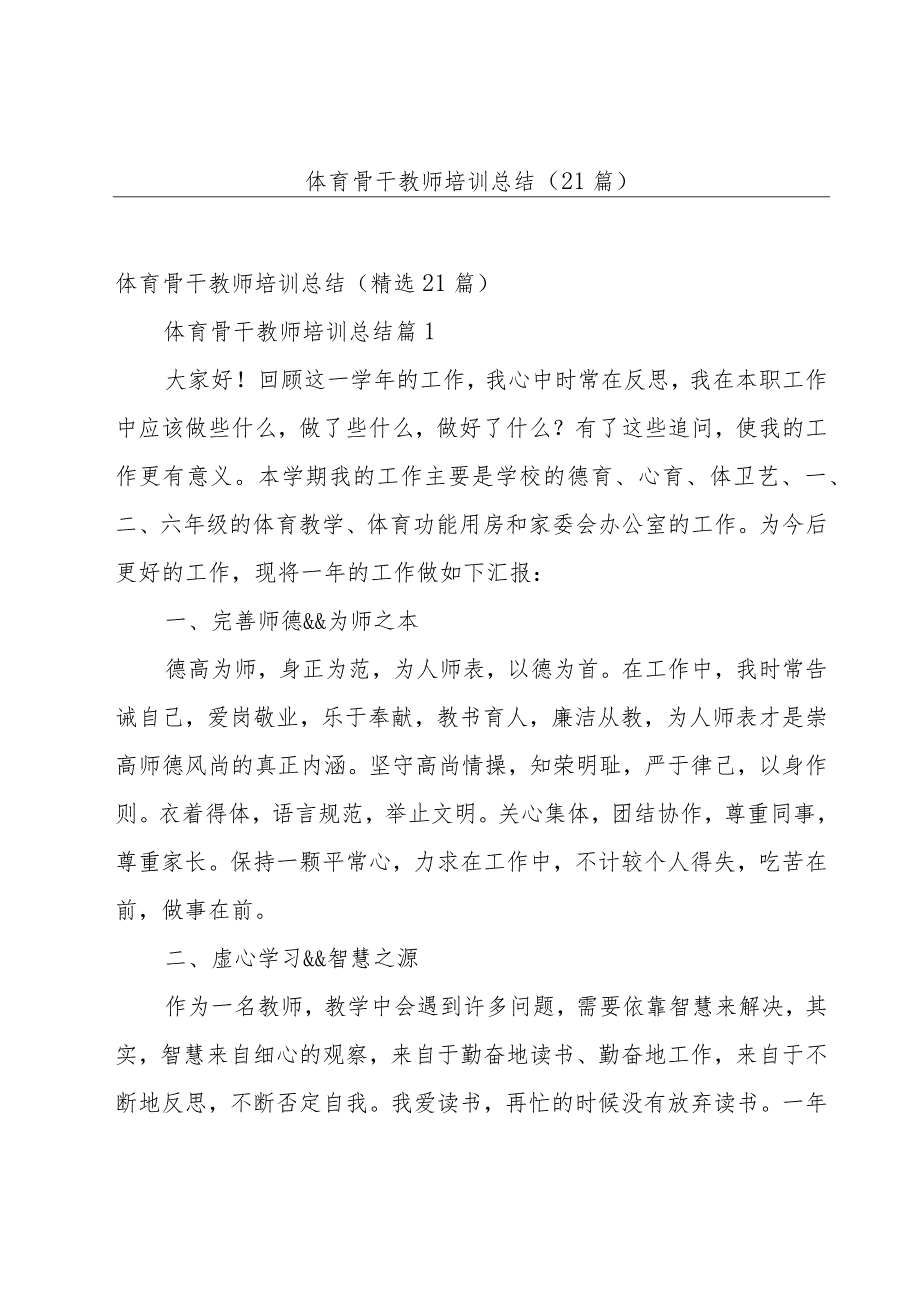 体育骨干教师培训总结（21 篇）
体育骨干教师培训总结（精选 21 篇）
体育骨干教师培训总结篇 1
大家好！回顾这一学年的工作，我心中时常在反思，我在本职工作
中应该做些什么，做了些什么，做好了什么？有了这些追问，使我的工
作更有意义。本学期我的工作主要是学校的德育、心育、体卫艺、一、
二、六年级的体育教学、体育功能用房和家委会办公室的工作。为今后
更好的工作，现将一年的工作做如下汇报：
一、完善师德&&为师之本
德高为师，身正为范，为人师表，以德为首。在工作中，我时常告
诫自己，爱岗敬业，乐于奉献，教书育人，廉洁从教，为人师表才是崇
高师德风尚的真正内涵。坚守高尚情操，知荣明耻，严于律己，以身作
则。衣着得体，语言规范，举止文明。关心集体，团结协作，尊重同事，
尊重家长。保持一颗平常心，力求在工作中，不计较个人得失，吃苦在
前，做事在前。
二、虚心学习&&智慧之源
作为一名教师，教学中会遇到许多问题，需要依靠智慧来解决，其
实，智慧来自细心的观察，来自于勤奋地读书、勤奋地工作，来自于不
断地反思，不断否定自我。我爱读书，再忙的时候没有放弃读书。一年